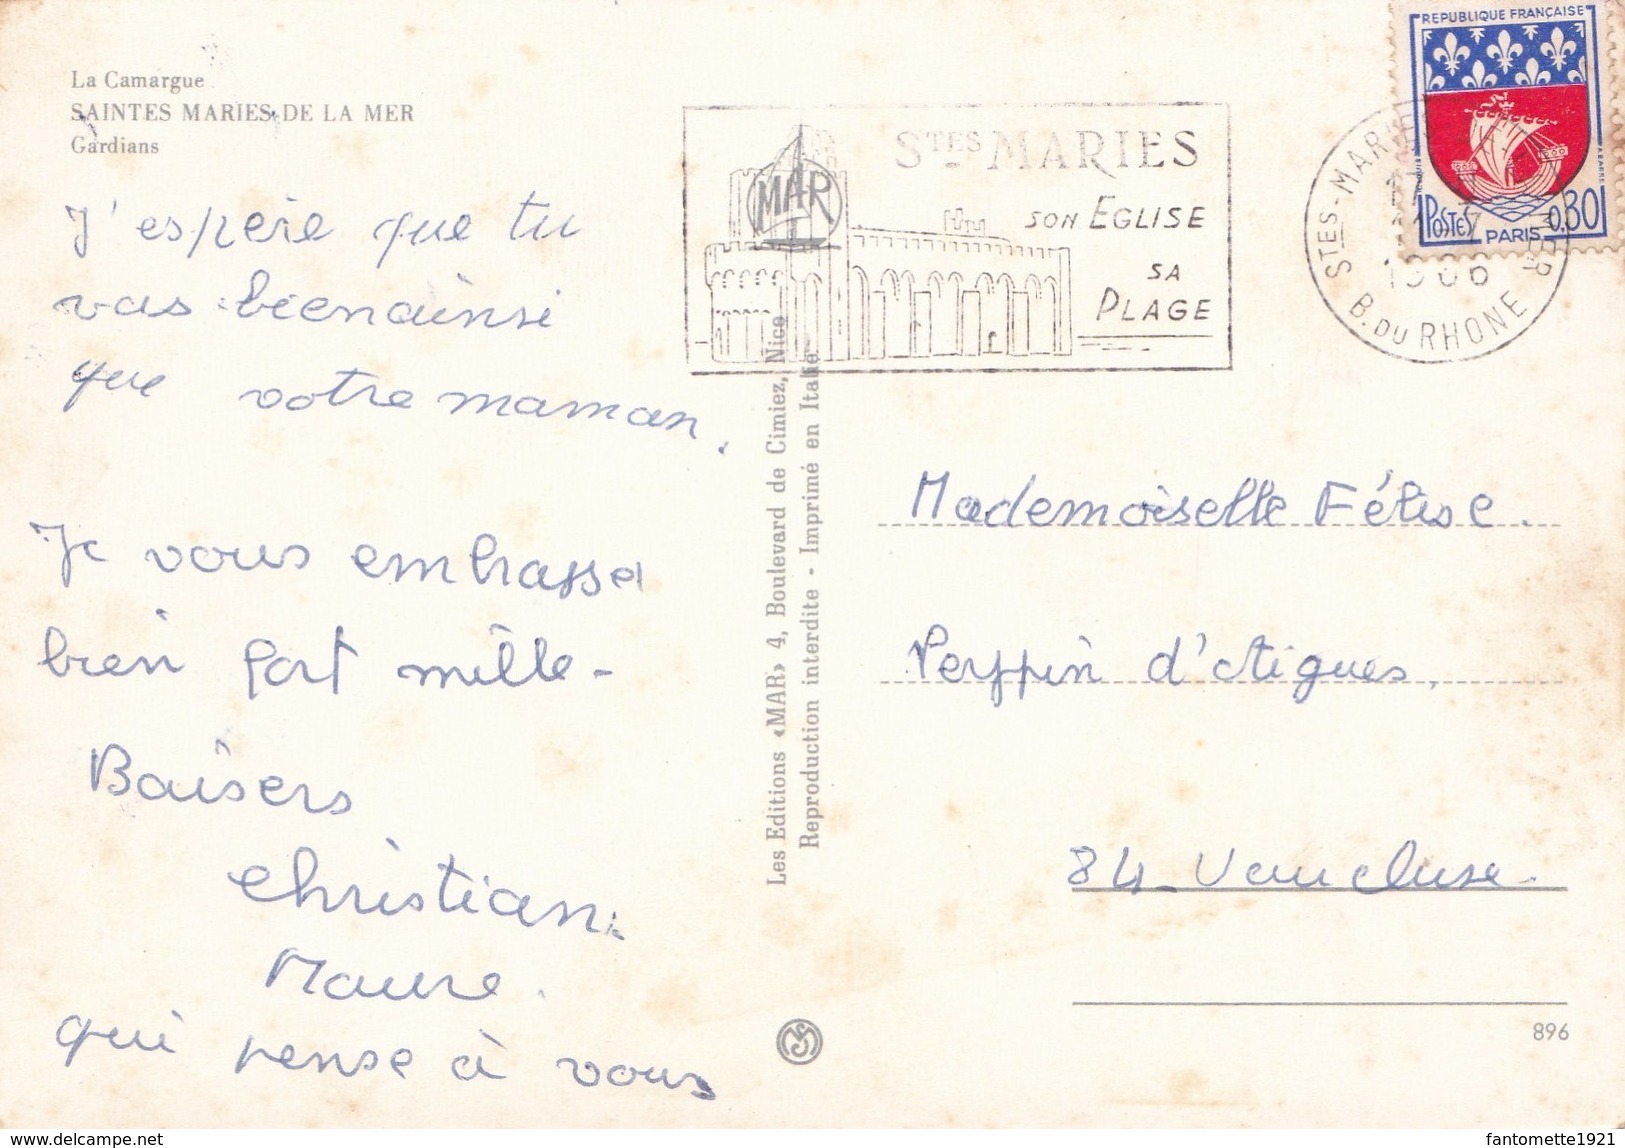 La Camargue
SAINTES MARIES DE LA MER
Gardians
J'espère que tu
vas bien ainsi
que votre maman.
Je vous embrasse
bien fort mille -
Baisers
Christian.
qui pense à vous
MAR
STES MARIES
SON EGLISE
SA
PLAGE
STES-MARIES
B. DU RHONE
REPUBLIQUE FRANÇAISE
POSTES
PARIS
0,30
Les Editions «MAR» 4, Boulevard de Cimiez, Nice
Reproduction interdite - Imprimé en Italie
Mademoiselle Félise.
d'Aigues,
84 - Vaucluse -
896
fantomette1921